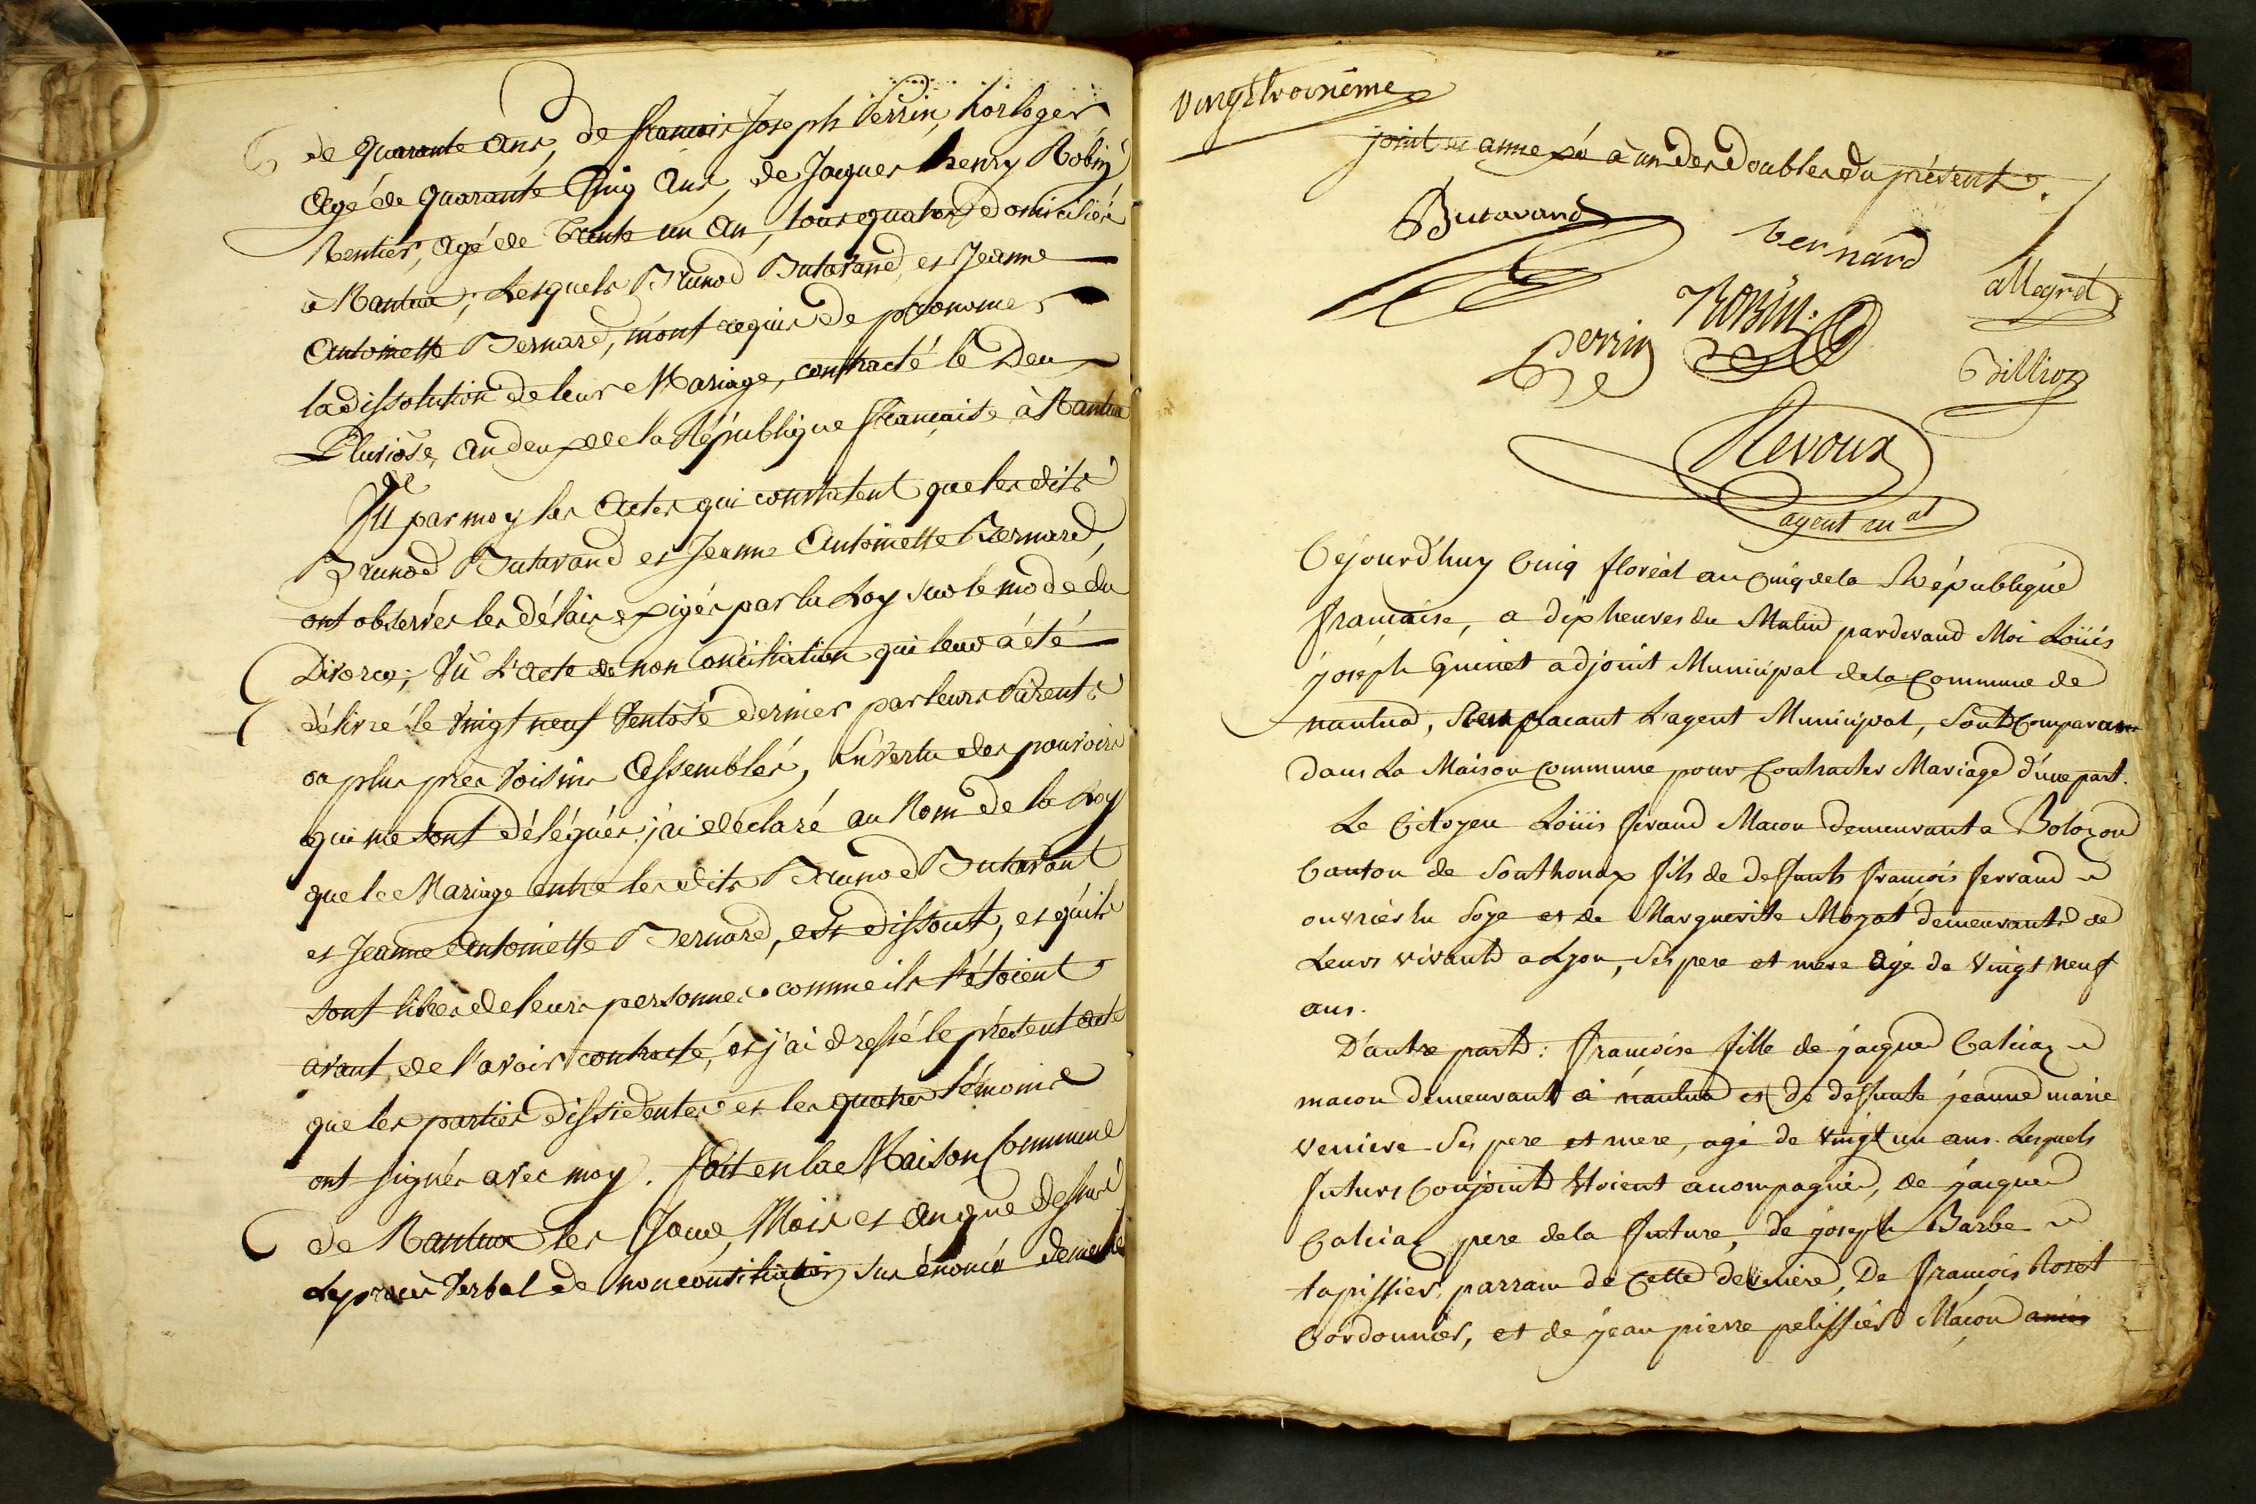 de quarante ans, de francois Joseph Perrin, horloger
agé de quarante Cinq ans, de Jacques henry Robin
Rentier, agé de trente un an, tous quatre domiciliés
à Nantua; Lesquels Brunod Butavand et Jeanne
Antoinette Bernard, m'ont requis de prononcer
la dissolution de leur Mariage, contracté le Deux
Pluviôse, an deux de la République française à Nantua
Vu par moy les Actes qui constatent que lesdits
Brunod Butavand et Jeanne Antoinette Bernard,
ont observés les délais exigés par la Loy sur le mode du
Divorce; Vu L'acte de non Conciliation qui leur à été
délivré le Vingt neuf Ventôse dernier par leurs Parents
ou plus près Voisins Assemblés, En vertu des pouvoirs
qui me sont délégués j'ai déclaré au Nom de la Loy
que le Mariage entre lesdits Brunod Butavant
et Jeanne Antoinette Bernard, est dissout, et qu'ils
sont libres de leurs personnes comme ils l'étoient
avant de l'avoir contracté, et j'ai dressé le présent acte
que les parties dissidentes et les quatre témoins
ont signés avec moy. Fait en la Maison Commune
de Nantua les Jour, Mois et an que dessus
Le procès Verbal de non conciliation sus énoncé demeure
Vingt troisième
joint et annexé à un des doubles du présent.
Butavand
bernard
allegret
Robin.
Perrin
Billion
Revoux
agent mal
Cejourd'huy Cinq floréal an Cinq de la République
française, a dix heures du Matin pardevand Moi Loüis
joseph Guinet adjoint Municipal de la Commune de
nantua, Remplacant L'agent Municipal, Sont Comparus
dans La Maison Commune pour Contracter Mariage d'une part.
Le Citoyen Loüis feraud Macon demeurant a Bolozon
Canton de Sonthonax fils de deffunts françois ferraud
ouvrier en Soye et de Marguerite Mozat demeurants de
Leurs vivants a Lyon, Ses pere et mere agé de Vingt neuf
ans.
D'autre part: francoise fille de jacques Caliaz
macon demeurant à nantua et de deffunte jeanne marie
veniere Ses pere et mere, agé de vingt un ans. Lesquels
futurs Conjoints étoient acompagnés, de jacques
Caliaz pere de la future, de joseph Barbe
tapissier, parrain de Cette derniere, De françois Roset
Cordonnier, et de jean pierre pelissier Maçon amis